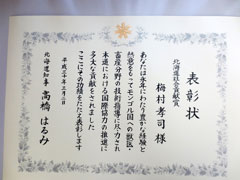 表彰状
北海道社会貢献賞
梅村孝司様
あなたは永年にわたり豊かな経験と
熱意をもってモンゴル国への獣医・
畜産分野の技術指導に尽力され
本道における国際協力の推進に
多大な貢献をされました
ここにその功績をたたえ表彰します
平成二十年三月二日
北海道知事 高橋はるみ